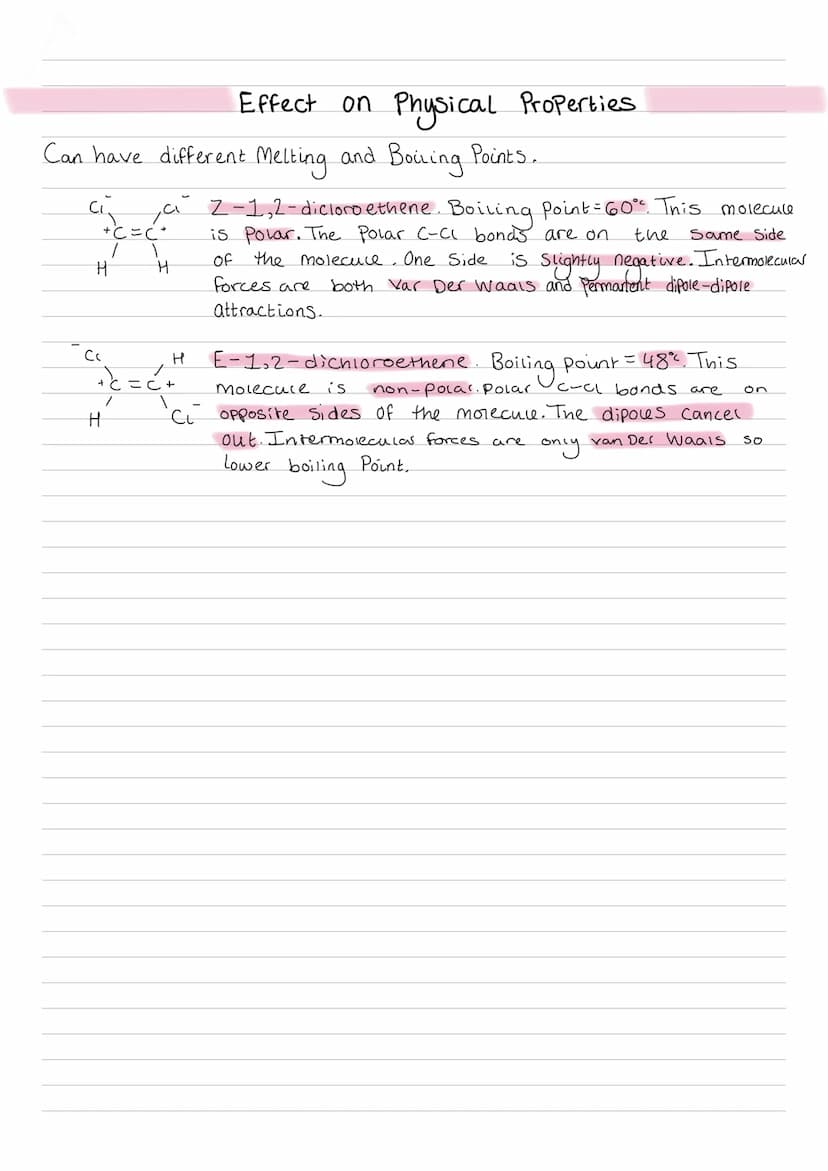 Effect on Physical Properties
Can have different Melting and Boiling Points.
Cl⁻ Cl⁻ Z-1,2-dicloroethene. Boiling point=60°C. This molecule
+C=C+ is Polar. The Polar C-Cl bonds are on the same side
H H of the molecule. One Side is Slightly negative. Intermolecular
forces are both Var Der Waals and Permanent dipole-dipole
attractions.
⁻Cl H E-1,2-dichloroethene. Boiling point=48°C. This
+C=C+ molecule is non-polar. Polar C-Cl bonds are on
H Cl⁻ opposite sides of the molecule. The dipoles cancel
out. Intermolecular forces are only van Der Waals so
lower boiling Point.